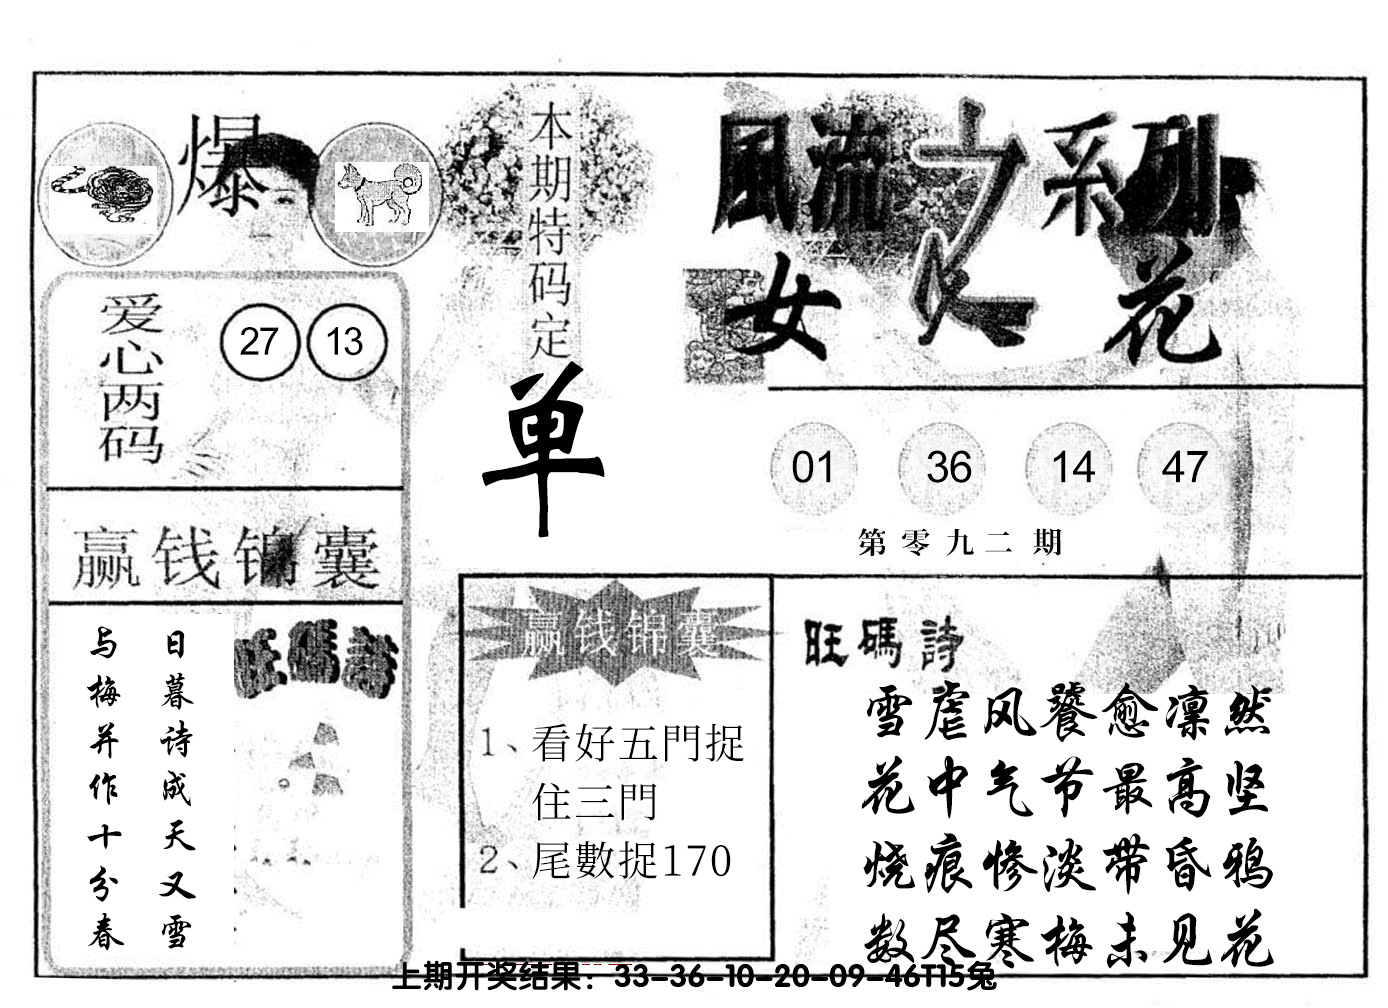 爆
爱心两码
27 13
赢钱锦囊
日暮诗成天又雪
与梅并作十分春
旺碼詩
本期特码定
单
風流之系列
女人花
01 36 14 47
第零九二期
赢钱锦囊
1、看好五門捉
住三門
2、尾數捉170
旺碼詩
雪虐风饕愈凛然
花中气节最高坚
烧痕惨淡带昏鸦
数尽寒梅未见花
上期开奖结果：33-36-10-20-09-46T15兔